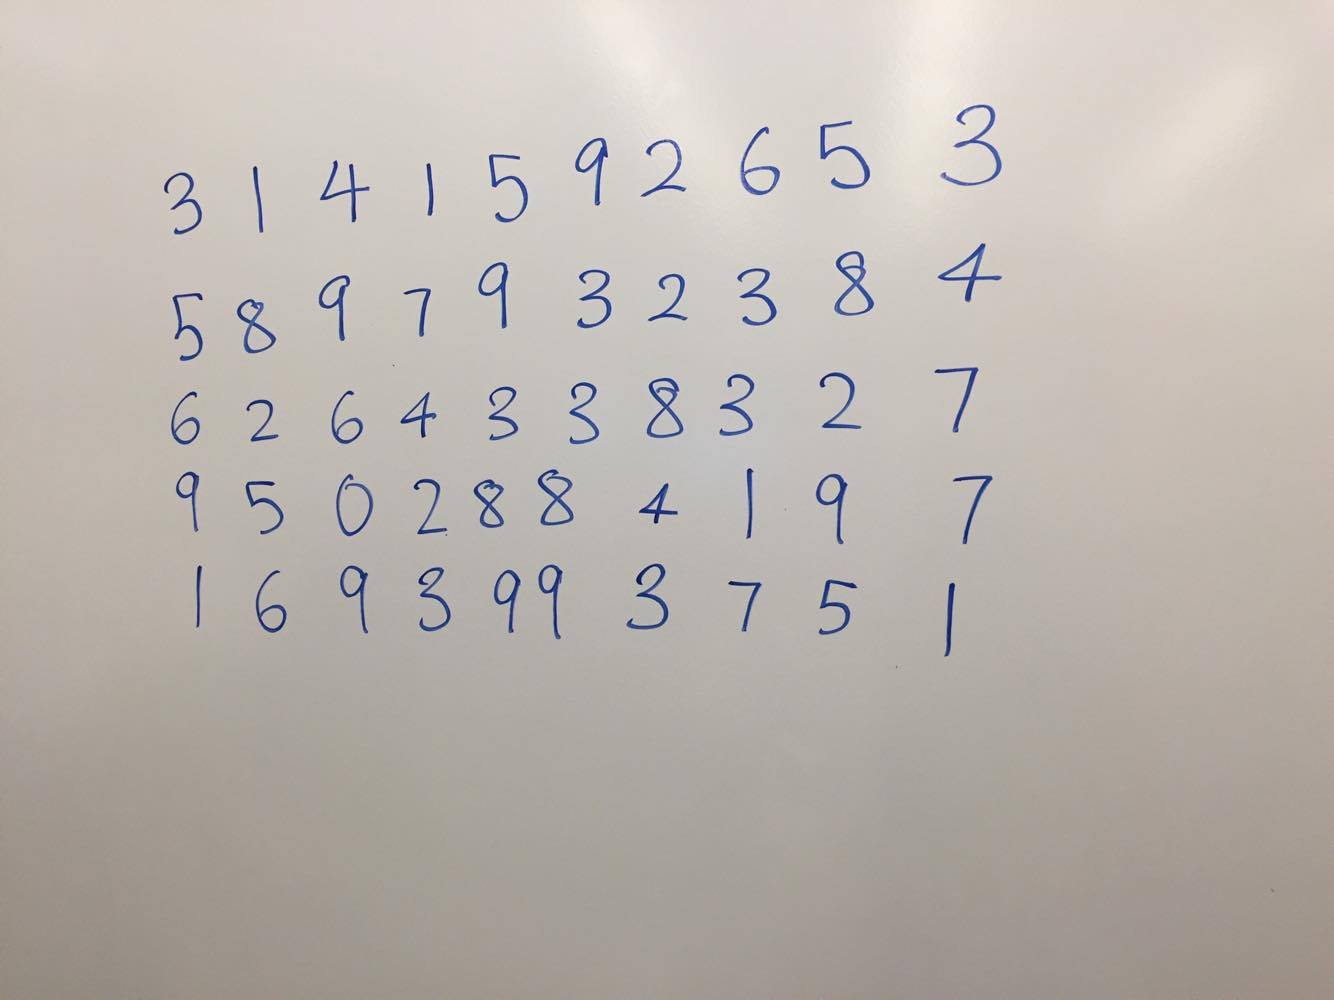 3 1 4 1 5 9 2 6 5 3
5 8 9 7 9 3 2 3 8 4
6 2 6 4 3 3 8 3 2 7
9 5 0 2 8 8 4 1 9 7
1 6 9 3 9 9 3 7 5 1